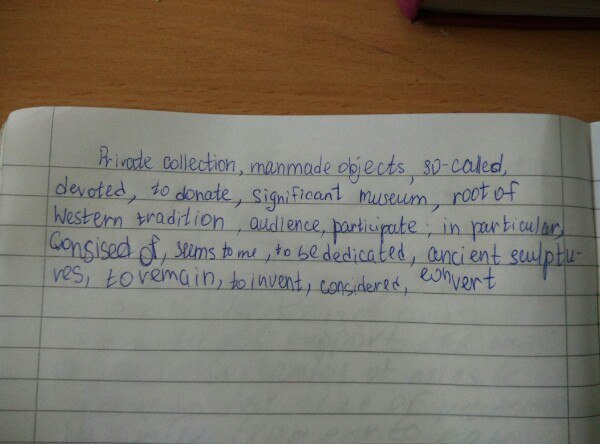 Private collection, manmade objects, so-called,
devoted, to donate, significant museum, root of
Western tradition, audience, participate, in particular,
Consised of, seems to me, to be dedicated, ancient sculptu-
res, to remain, to invent, considered, convert